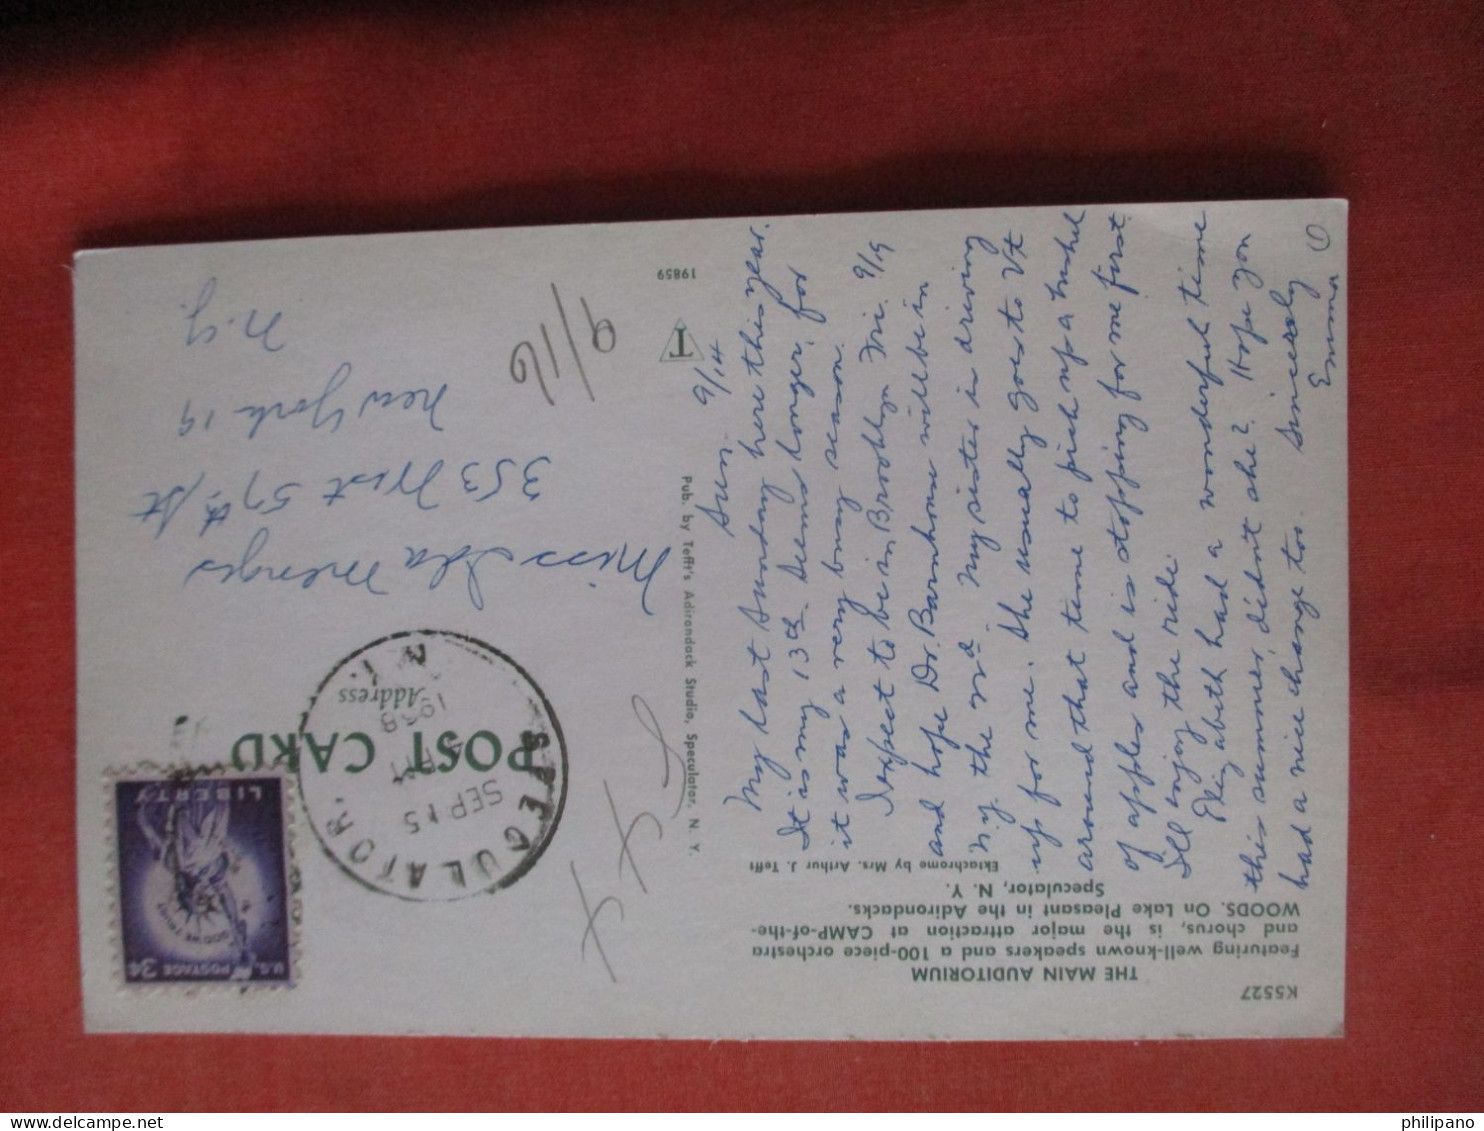 K5527
THE MAIN AUDITORIUM
Featuring well-known speakers and a 100-piece orchestra
and chorus, is the major attraction at CAMP-of-the-
WOODS. On Lake Pleasant in the Adirondacks.
Speculator, N. Y.
Ektachrome by Mrs. Arthur J. Tefft
Sun. 9/14
My last Sunday here this year.
It is my 13th. Seems longer, for
it was a very busy season.
I expect to be in Brooklyn Fri. 9/19
and hope Dr. Barnhouse will be in
N.Y. the My sister is driving
up for me. She usually goes to Vt
around that time to pick up a bushel
of apples and is stopping for me first.
I'll enjoy the ride.
Elizabeth had a wonderful time
this summer, didn't she? Hope you
had a nice change too. Sincerely
Emma
Pub. by Tefft's Adirondack Studio, Speculator, N. Y.
T
19859
POST CARD
Address
SPECULATOR.
SEP 15
1958
N.Y.
U.S. POSTAGE 3¢
IN GOD WE TRUST
LIBERTY
Miss Ida Menges
353 West 57th St
New York 19
N.Y.
9/16
philipano